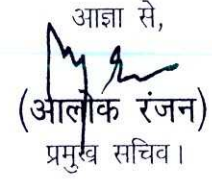 आज्ञा से,
(आलोक रंजन)
प्रमुख सचिव।